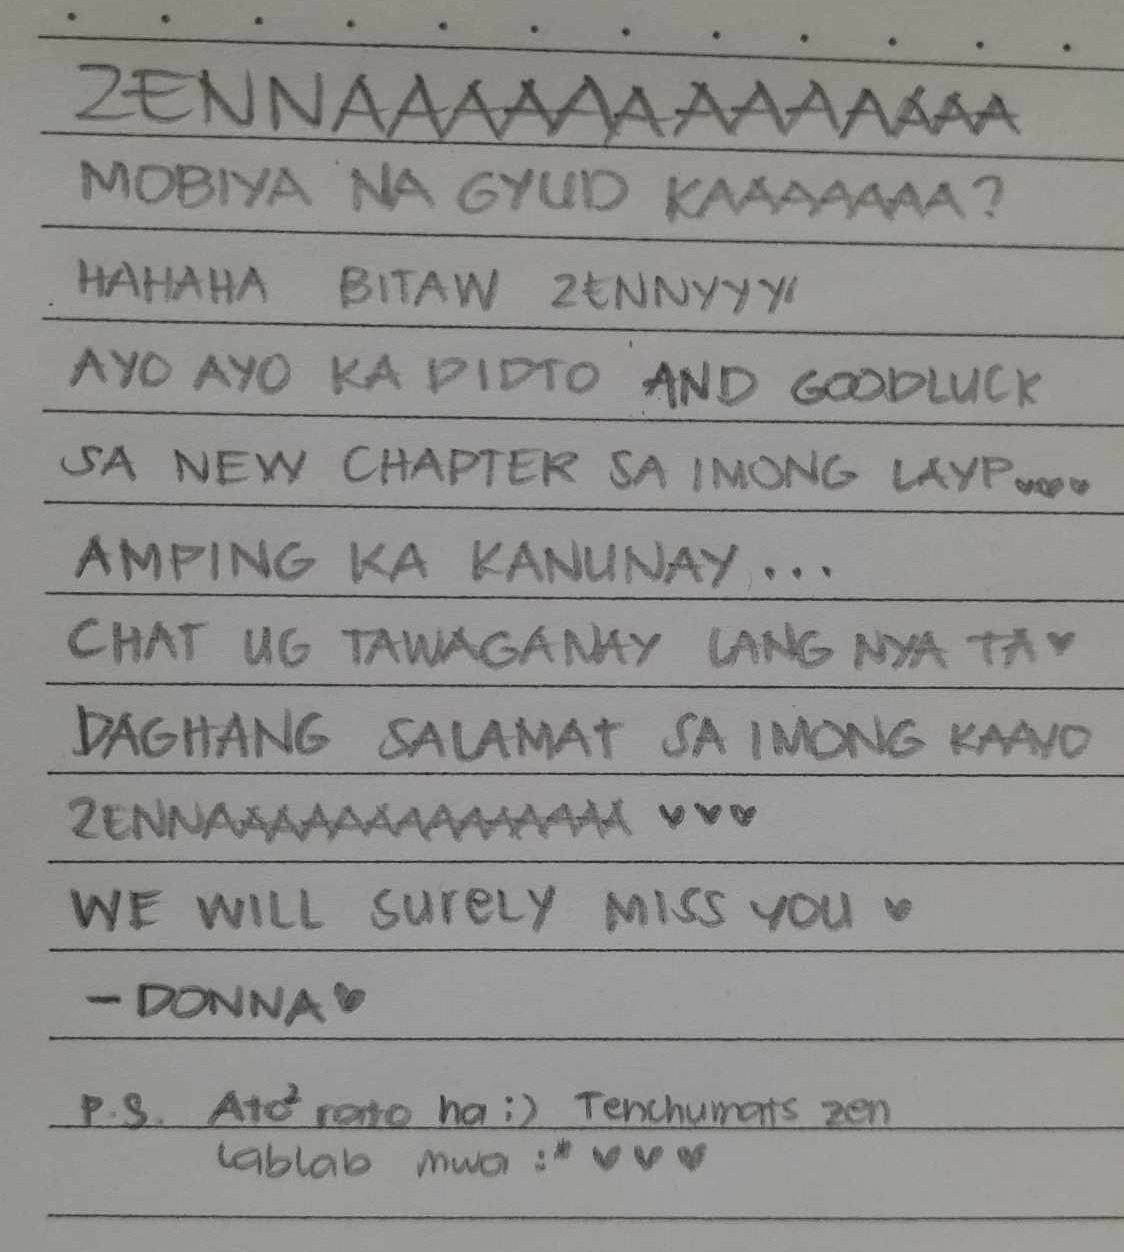 ZENNAAAAAAAAAAAAAAA
MOBIYA NA GYUD KAAAAAAAA?
HAHAHA BITAW ZENNYYYY
AYO AYO KA DIDTO AND GOODLUCK
SA NEW CHAPTER SA IMONG LAYP♥♥♥
AMPING KA KANUNAY...
CHAT UG TAWAGANAY LANG NYA TA♥
DAGHANG SALAMAT SA IMONG KAAYO
ZENNAAAAAAAAAAAAAAA ♥♥♥
WE WILL SURELY MISS YOU ♥
- DONNA♥
P.S. Ato² rato ha :) Tenchumats zen
lablab mwa :* ♥♥♥